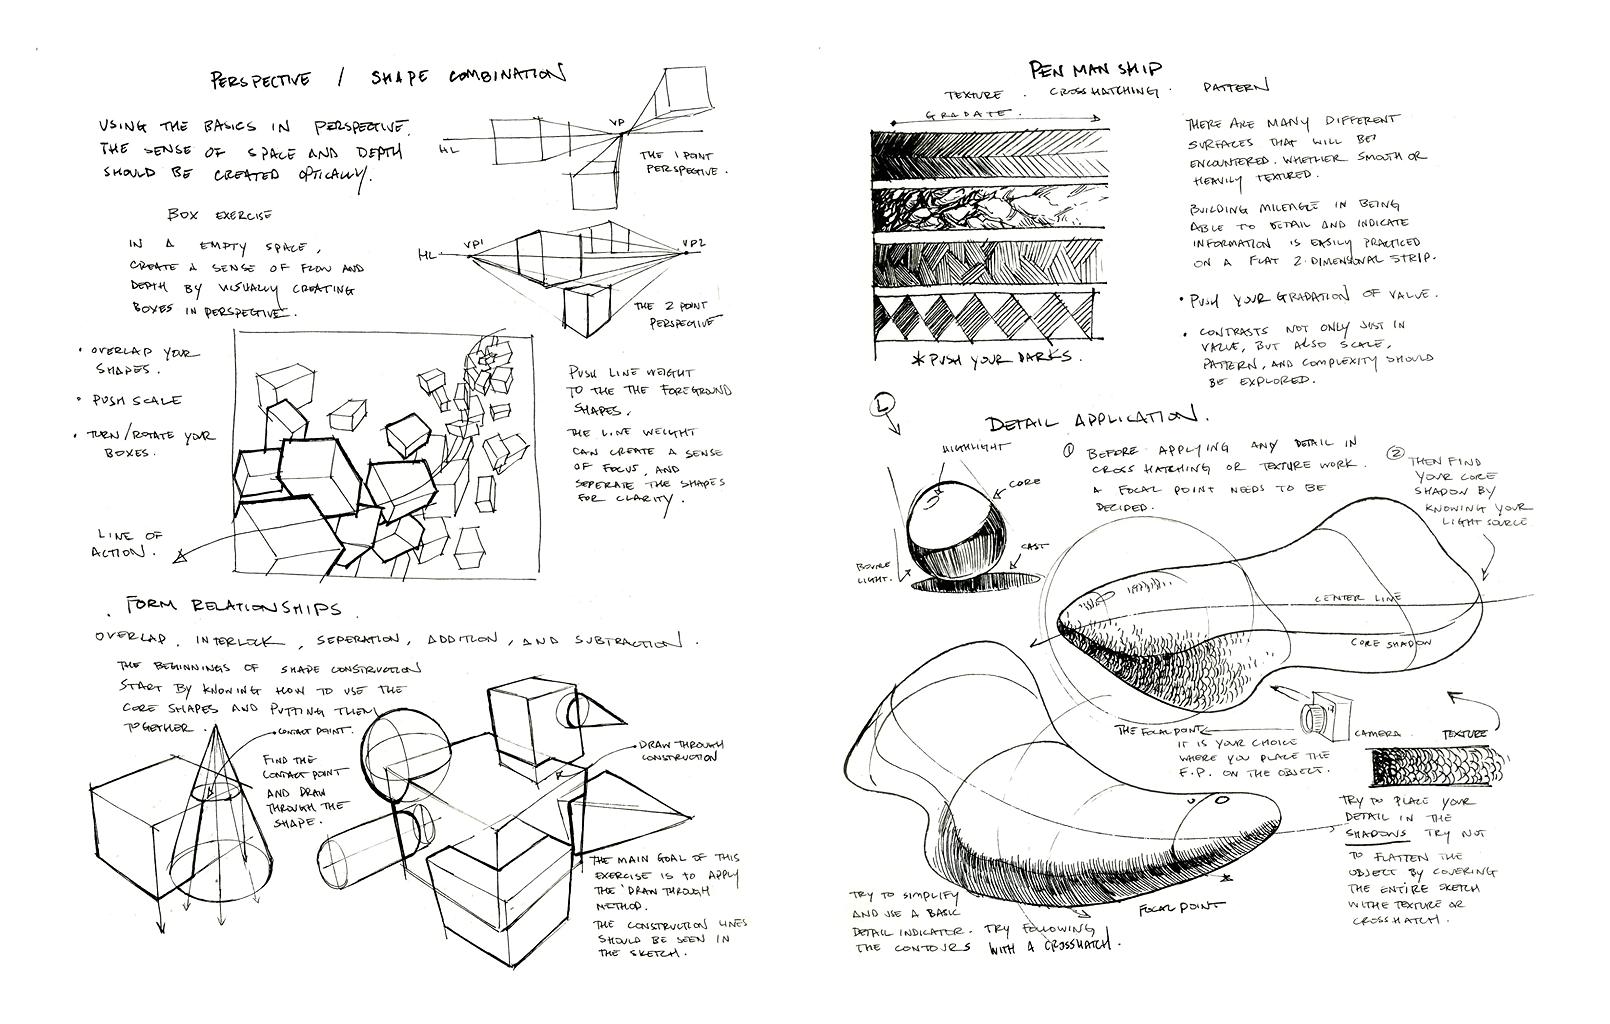 PERSPECTIVE / SHAPE COMBINATION
USING THE BASICS IN PERSPECTIVE.
THE SENSE OF SPACE AND DEPTH
SHOULD BE CREATED OPTICALLY.
HL
VP
THE 1 POINT
PERSPECTIVE.
BOX EXERCISE
IN A EMPTY SPACE,
CREATE A SENSE OF FLOW AND
DEPTH BY VISUALLY CREATING
BOXES IN PERSPECTIVE.
HL
VP1
VP2
THE 2 POINT
PERSPECTIVE
• OVERLAP YOUR
SHAPES.
• PUSH SCALE
• TURN/ROTATE YOUR
BOXES.
LINE OF
ACTION.
PUSH LINE WEIGHT
TO THE THE FOREGROUND
SHAPES.
THE LINE WEIGHT
CAN CREATE A SENSE
OF FOCUS, AND
SEPERATE THE SHAPES
FOR CLARITY.
FORM RELATIONSHIPS
OVERLAP, INTERLOCK, SEPERATION, ADDITION, AND SUBTRACTION.
THE BEGINNINGS OF SHAPE CONSTRUCTION
START BY KNOWING HOW TO USE THE
CORE SHAPES AND PUTTING THEM
TOGETHER.
CONTACT POINT.
FIND THE
CONTACT POINT
AND DRAW
THROUGH THE
SHAPE.
DRAW THROUGH
CONSTRUCTION
THE MAIN GOAL OF THIS
EXERCISE IS TO APPLY
THE 'DRAW THROUGH
METHOD.
THE CONSTRUCTION LINES
SHOULD BE SEEN IN
THE SKETCH.
PENMANSHIP
TEXTURE . CROSSHATCHING . PATTERN
GRADATE.
*PUSH YOUR DARKS.
THERE ARE MANY DIFFERENT
SURFACES THAT WILL BE
ENCOUNTERED. WHETHER SMOOTH OR
HEAVILY TEXTURED.
BUILDING MILEAGE IN BEING
ABLE TO DETAIL AND INDICATE
INFORMATION IS EASILY PRACTICED
ON A FLAT 2-DIMENSIONAL STRIP.
• PUSH YOUR GRADATION OF VALUE.
• CONTRASTS NOT ONLY JUST IN
VALUE, BUT ALSO SCALE,
PATTERN, AND COMPLEXITY SHOULD
BE EXPLORED.
L
DETAIL APPLICATION.
HIGHLIGHT
CORE
CAST
BOUNCE
LIGHT.
1 BEFORE APPLYING ANY DETAIL IN
CROSS HATCHING OR TEXTURE WORK.
A FOCAL POINT NEEDS TO BE
DECIDED.
2 THEN FIND
YOUR CORE
SHADOW BY
KNOWING YOUR
LIGHT SOURCE.
CENTER LINE
CORE SHADOW
THE FOCAL POINT
IT IS YOUR CHOICE
WHERE YOU PLACE THE
F.P. ON THE OBJECT.
CAMERA
TEXTURE
TRY TO PLACE YOUR
DETAIL IN THE
SHADOWS TRY NOT
TO FLATTEN THE
OBJECT BY COVERING
THE ENTIRE SKETCH
WITHE TEXTURE OR
CROSSHATCH.
FOCAL POINT
TRY TO SIMPLIFY
AND USE A BASIC
DETAIL INDICATOR. TRY FOLLOWING
THE CONTOURS WITH A CROSSHATCH.